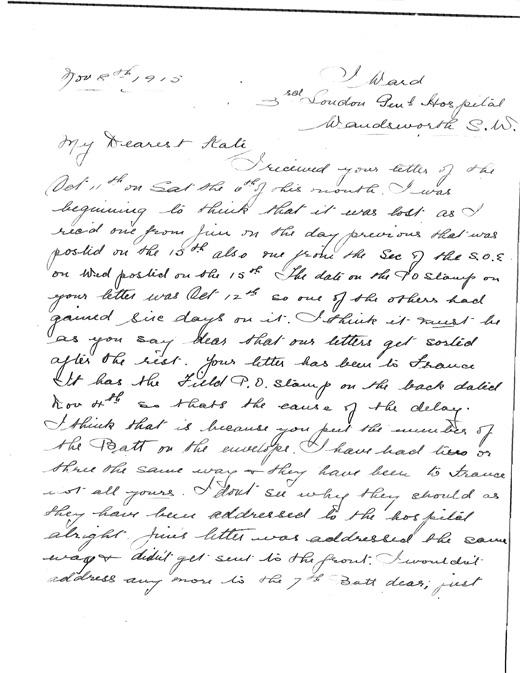 Nov 8th 1915
I Ward
3rd London Genl Hospital
Wandsworth S.W.
My Dearest Kate
I received your letter of the
Oct 11th on Sat the 6th of this month. I was
beginning to think that it was lost as I
recd one from Jim on the day previous that was
posted on the 15th also one from the Sec of the S.O.E
on Wed posted on the 15th. The date on the P.O Stamp on
your letter was Oct 12th so one of the others had
gained six days on it. I think it must be
as you say dear that our letters get sorted
after the rest. Your letter has been to France
It has the Field P.O. Stamp on the back dated
Nov 4th so thats the cause of the delay.
I think that is because you put the number of
the Batt on the envelope. I have had two or
three the same way & they have been to France
not all yours. I dont see why they should as
they have been addressed to the hospital
alright. Jims letter was addressed the same
way & didn't get sent to the front. I wouldn't
address any more to the 7th Batt dear, just